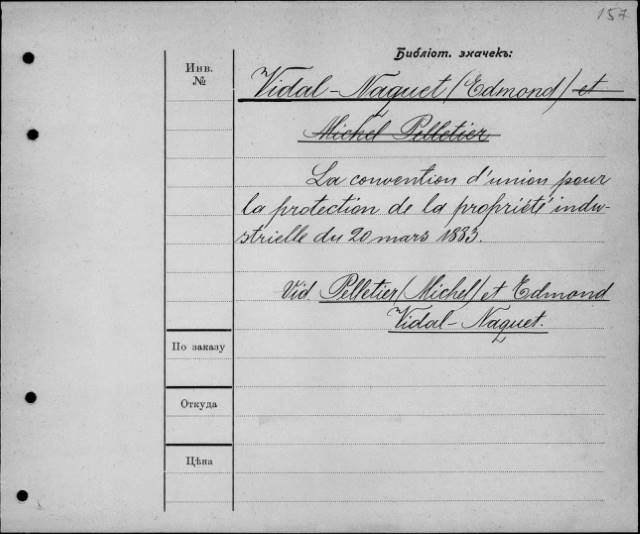 157
Библіот. значекъ:
Инв.
№
Vidal-Naquet (Edmond) et
Michel Pelletier
La convention d'union pour
la protection de la propriété indu-
strielle du 20 mars 1883.
Vid. Pelletier (Michel) et Edmond
Vidal-Naquet.
По заказу
Откуда
Цѣна